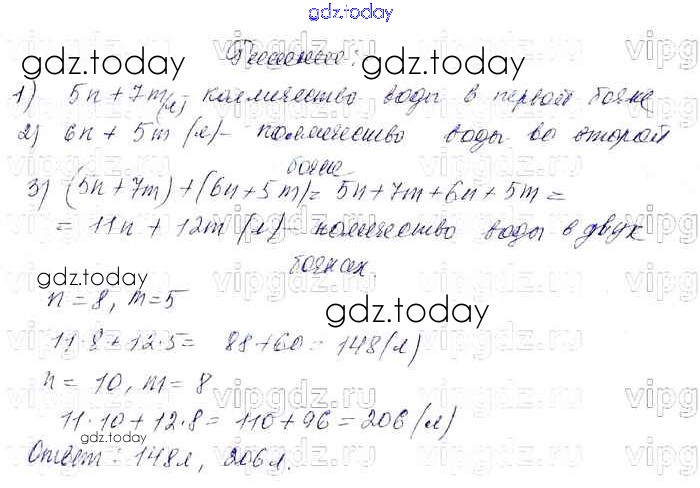 gdz.today
Решение:
1) 5n + 7m (л) количество воды в первой бочке
2) 6n + 5m (л) - количество воды во второй
бочке
3) (5n + 7m) + (6n + 5m) = 5n + 7m + 6n + 5m =
= 11n + 12m (л) - количество воды в двух
бочках.
n = 8, m = 5
11·8 + 12·5 = 88 + 60 = 148 (л)
n = 10, m = 8
11·10 + 12·8 = 110 + 96 = 206 (л)
Ответ: 148л, 206л.
gdz.today
gdz.today
gdz.today
gdz.today
gdz.today
vipgdz.ru